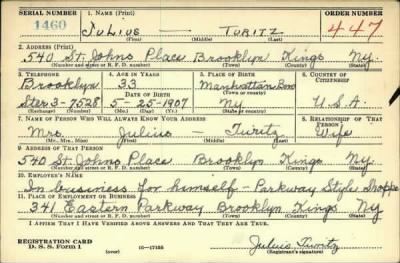 SERIAL NUMBER 1. NAME (Print) ORDER NUMBER
1460 JULIUS — TURITZ 447
(First) (Middle) (Last)
2. ADDRESS (Print)
540 St. Johns Place Brooklyn Kings Ny.
(Number and street or R. F. D. number) (Town) (County) (State)
3. TELEPHONE 4. AGE IN YEARS 5. PLACE OF BIRTH 6. COUNTRY OF CITIZENSHIP
Brooklyn 33 Manhattan Boro
DATE OF BIRTH (Town or county)
Ster 3-7528 5-25-1907 Ny U.S.A.
(Exchange) (Number) (Mo.) (Day) (Yr.) (State or country)
7. NAME OF PERSON WHO WILL ALWAYS KNOW YOUR ADDRESS 8. RELATIONSHIP OF THAT PERSON
Mrs. Julius — Turitz Wife
(Mr., Mrs., Miss) (First) (Middle) (Last)
9. ADDRESS OF THAT PERSON
540 St Johns Place Brooklyn Kings Ny.
(Number and street or R. F. D. number) (Town) (County) (State)
10. EMPLOYER'S NAME
In business for himself - Parkway Style Shoppe
11. PLACE OF EMPLOYMENT OR BUSINESS
341 Eastern Parkway Brooklyn Kings Ny
(Number and street or R. F. D. number) (Town) (County) (State)
I AFFIRM THAT I HAVE VERIFIED ABOVE ANSWERS AND THAT THEY ARE TRUE.
REGISTRATION CARD
D. S. S. Form 1 (over) 16—17105 Julius Turitz
(Registrant's signature)